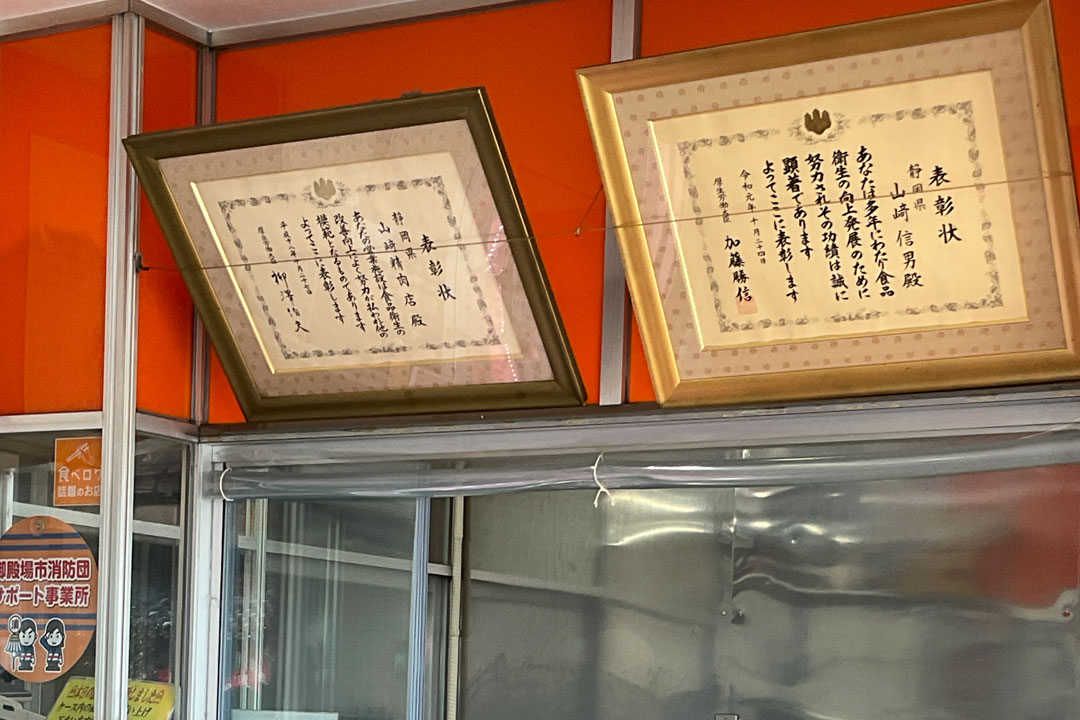 表彰状
静岡県
山﨑精肉店殿
あなたの営業施設は食品衛生の
改善向上によく努力が払われ他の
模範となるものであります
よってここに表彰します
平成十八年十月二十七日
厚生労働大臣
柳澤伯夫
表彰状
静岡県
山﨑信男殿
あなたは多年にわたり食品
衛生の向上発展のために
努力されその功績は誠に
顕著であります
よってここに表彰します
令和元年十月二十四日
厚生労働大臣
加藤勝信
食べログ
話題のお店
御殿場市消防団
サポート事業所
しました
ケース内の
い上げ